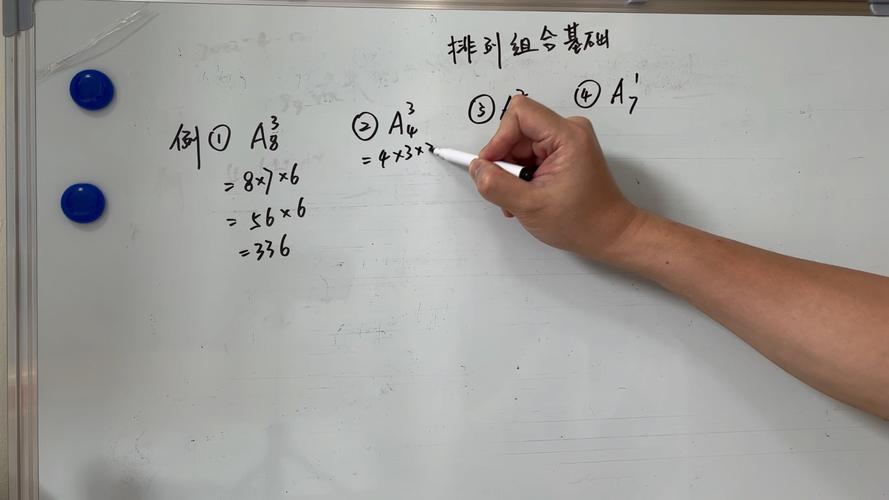 排列组合基础
例① A₈³
= 8×7×6
= 56×6
= 336
② A₄³
= 4×3×2
③ A
④ A₇¹